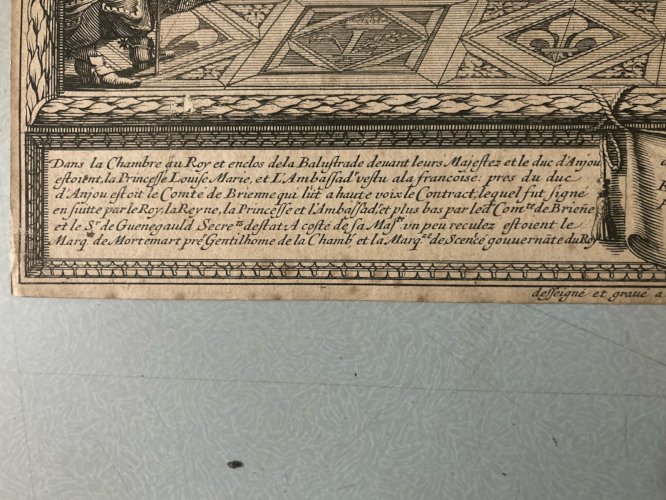 Dans la Chambre du Roy et enclos de la Balustrade deuant leurs Majestez et le duc d'Anjou
estoient, la Princesse Louise Marie, et L'Ambassad.r vestu a la francoise: pres du duc
d'Anjou estoit le Comte de Brienne qui lût a haute voix le Contract, lequel fut signé
en suitte par le Roy, la Reyne, la Princesse et l'Ambassad.r et plus bas par led.t Com.te de Briene
et le S.r de Guenegauld Secre.re destat. A costé de sa Ma.té vn peu reculez estoient le
Marq. de Mortemart pr.e Gentilhome de la Chamb. et la Marq.se de Scencé gouuernāte du Roy
desseigné et graué a